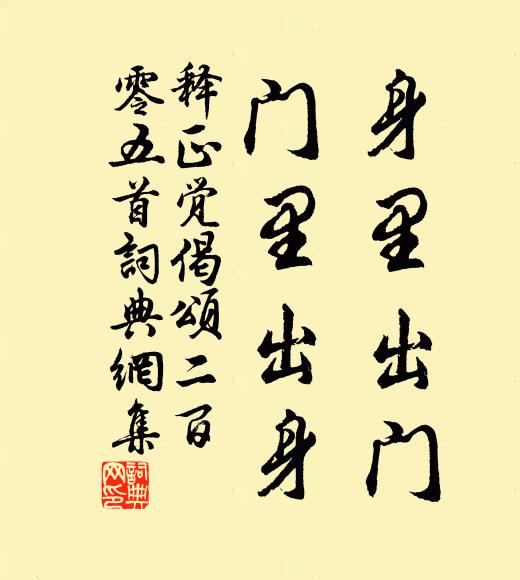 身里出门
门里出身
释正觉偈颂二百
零五首詞典網集
詞典
网印